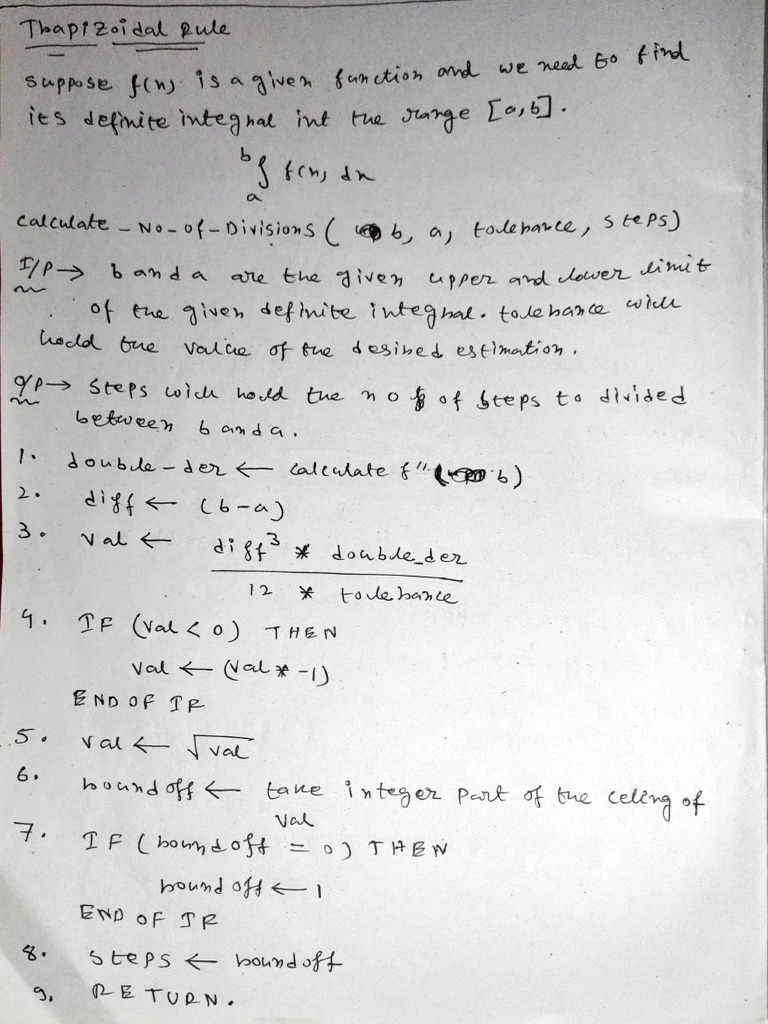 Trapizoidal Rule
suppose f(x) is a given function and we need to find
its definite integral int the range [a,b].
b
∫ f(x) dx
a
Calculate_No-of-Divisions ( b, a, tolerance, steps)
I/P → b and a are the given upper and lower limit
of the given definite integral. tolerance will
hold the value of the desired estimation.
O/P → Steps will hold the no of steps to divided
between b and a.
1. double-der ← calculate f"( b)
2. diff ← (b-a)
3. val ← diff³ * double_der
12 * tolerance
4. IF (val < 0) THEN
val ← (val * -1)
END OF IF
5. val ← √val
6. roundoff ← take integer part of the celing of
val
7. IF (roundoff = 0) THEN
roundoff ← 1
END OF IF
8. steps ← roundoff
9. RETURN.